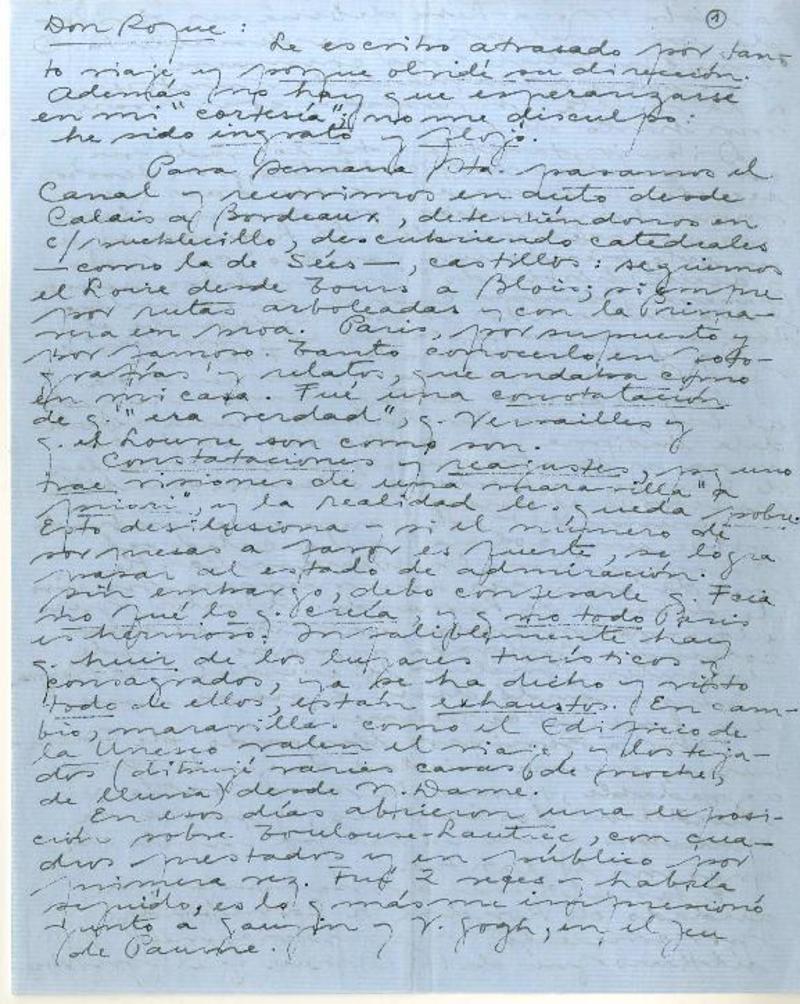 ①
Don Roque:
Le escribo atrasado por tan-
to viaje, y porque olvidé su dirección.
Además no hay que esperanzarse
en mi "cortesía"; no me disculpo:
he sido ingrato y flojo.
Para Semana Sta. pasamos el
Canal y recorrimos en auto desde
Calais a Bordeaux, deteniéndonos en
c/ pueblecillo, descubriendo catedrales
—como la de Sées—, castillos: seguimos
el Loire desde Tours a Blois; siempre
por rutas arboleadas y con la Prima-
vera en proa. París, por supuesto y
por famoso. Tanto conocerlo en foto-
grafías y relatos, que andaba como
en mi casa. Fué una constatación
de q. "era verdad", q. Versailles y
q. el Louvre son como son.
Constataciones y reajustes, pq uno
trae visiones de una maravilla "a
priori", y la realidad le queda pobre.
Esto desilusiona y si el número de
sorpresas a favor es fuerte, se logra
pasar al estado de admiración.
Sin embargo, debo confesarle q.
no fué lo q. creía, y q no todo París
es hermoso. Infaliblemente hay
q. huir de los lugares turísticos y
consagrados, ya se ha dicho y visto
todo de ellos, están exhaustos. En cam-
bio, maravillas como el Edificio de
la Unesco valen el viaje, y los teja-
dos (dibujé varias casas de noche,
de lluvia) desde N. Dame.
En esos días abrieron una exposi-
ción sobre Toulouse-Lautrec, con cua-
dros prestados y en público por
primera vez. Fuí 2 veces y habría
seguido, es lo q más me impresionó
junto a Gauguin y V. Gogh, en el Jeu
de Paume.